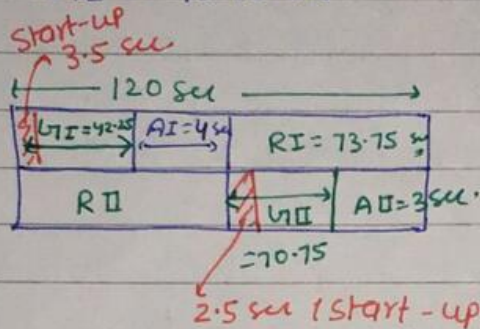 Start-up
3.5 sec
120 sec
GI=42.25 AI=4 se RI = 73.75 s
R II GII AII=3 sec.
=70.75
2.5 sec / Start-up